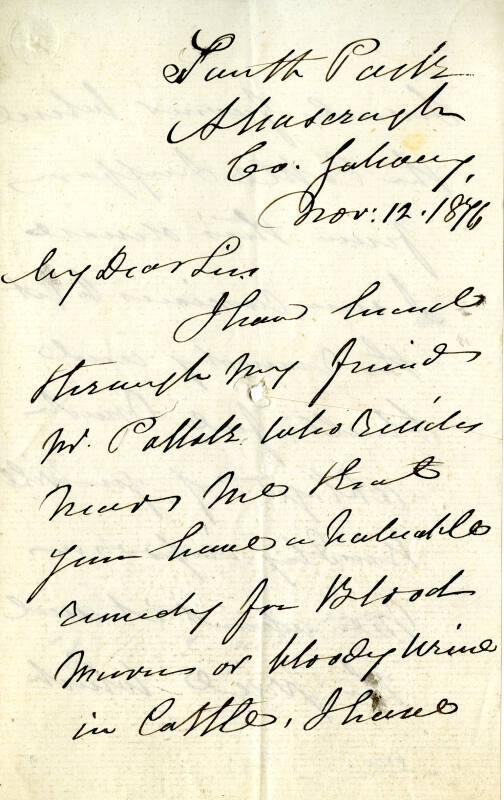 South Park
Ahascragh
Co. Galway,
Nov: 12. 1876
My Dear Sir
I have heard
through my friend
Mr. Pollok who resides
near me that
you have a valuable
remedy for Blood
Murrin or bloody Urine
in Cattle, I have